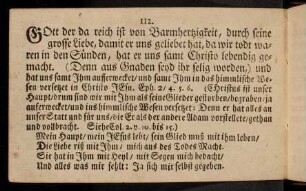 112.
GOtt der da reich ist von Barmhertzigkeit, durch seine
grosse Liebe, damit er uns geliebet hat, da wir todt wa-
ren in den Sünden, hat er uns samt Christo lebendig ge-
macht. (Denn aus Gnaden seyd ihr selig worden,) und
hat uns samt Ihm aufferwecket/ und samt Ihm in das himmlische We-
sen versetzt in Christo JEsu. Eph. 2/ 4. 5. 6. (Christus ist unser
Haupt/ drum sind wir mit Ihm als seine Glieder gestorben/ begraben/ ja
aufferwecket/ und ins himmlische Wesen versetzt: Denn er hat alles an
unser Statt und für uns/ die Er als der andere Adam vorstellete/ gethan
und vollbracht. Siehe Col. 2. v. 10. bis 15.)
Mein Haupt/ mein JEsus lebt/ sein Glied muß mit ihm leben/
Die Liebe riß mit Ihm/ mich aus des Todes Nacht.
Sie hat in Ihm mit Heyl/ mit Segen mich bedacht/
Und alles was mir fehlt: Ja sich mir selbst gegeben.